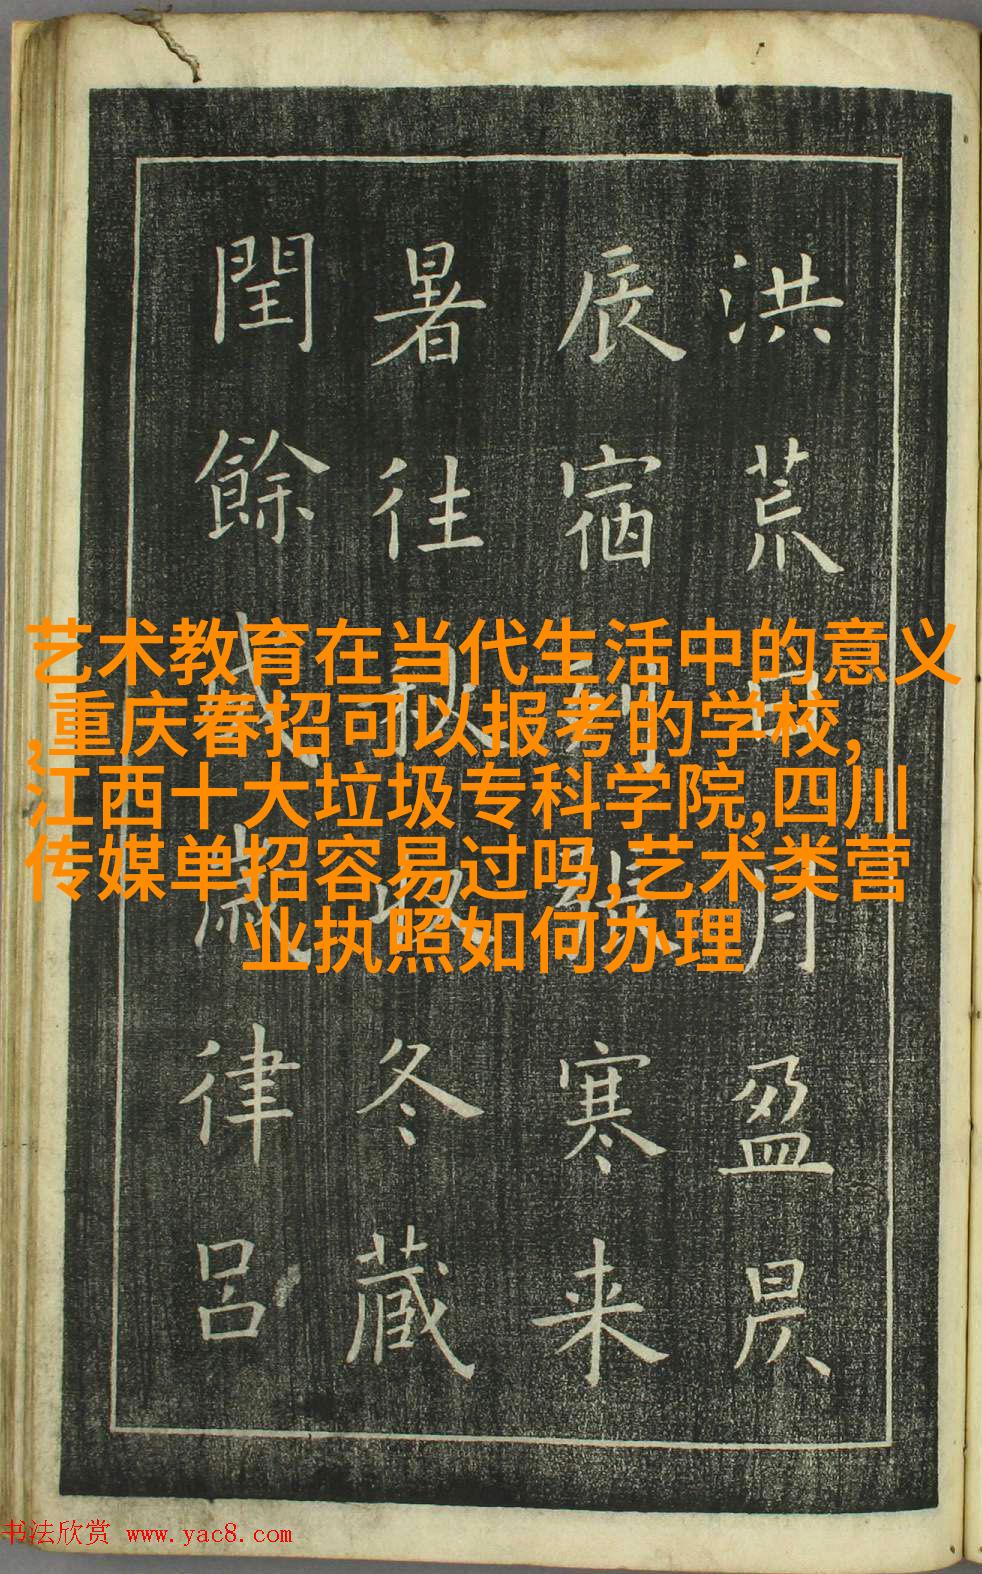 洪荒日月盈昃
辰宿列張寒来
暑往秋收冬藏
閏餘成歲律呂
艺术教育在当代生活中的意义
,重庆春招可以报考的学校,
江西十大垃圾专科学院,四川
传媒单招容易过吗,艺术类营
业执照如何办理
书法欣赏 www.yac8.com